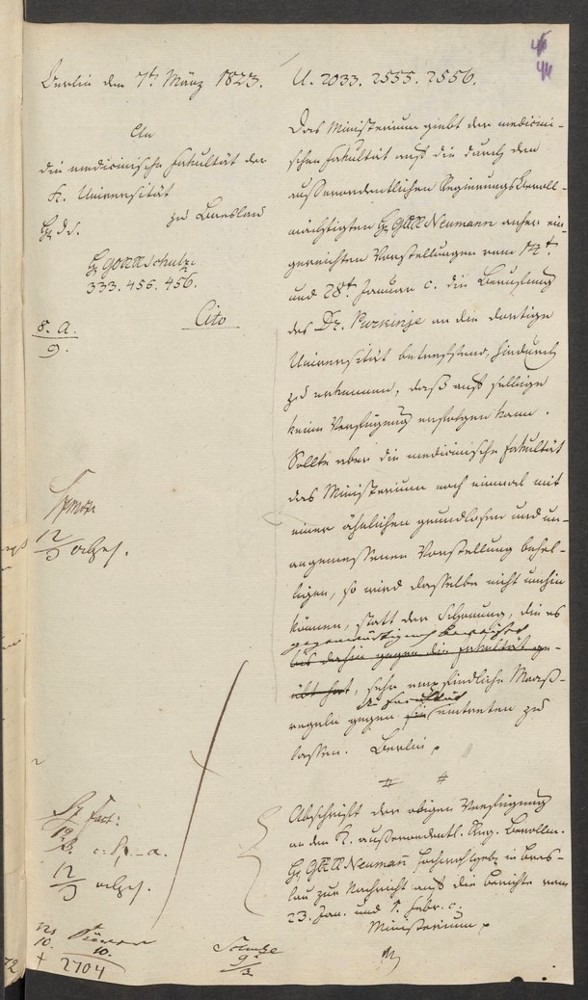 44
Berlin den 7t. März 1823.
An
die medicinische Fakultät der
K. Universität
zu Breslau
H GORR Schultz
333. 455. 456.
Cito
8. a.
9.
12
3 abges.
12
3 abges.
10.
2704
Schulze
U. 2033. 2555. 2556.
Das Ministerium giebt der medicini-
schen Fakultät auf die durch den
außerordentlichen Regierungsbevoll-
mächtigten H GORR Neumann anher ein-
gereichten Vorstellungen vom 14t.
und 28t. Januar c. die Berufung
des Dr. Purkinje an die dortige
Universität betreffend, hindurch
zu erkennen, daß auf selbige
keine Verfügung erfolgen kann.
Sollte aber die medicinische Fakultät
das Ministerium noch einmal mit
einer ähnlichen grundlosen und un-
angemessenen Vorstellung behel-
ligen, so wird dasselbe nicht umhin
können, statt der Schonung, die es
gegenwärtig bewiesen
bis dahin gegen die Fakultät ge-
übt hat, sehr empfindliche Maaß-
die Fakultät
regeln gegen sie eintreten zu
lassen. Berlin
Abschrift der obigen Verfügung
an den K. außerordentl. Reg. Bevollm.
H GORR Neumann Hochwohlgeb. in Bres-
lau zur Nachricht auf die Berichte vom
23. Jan. und 1. Febr. c.
Ministerium